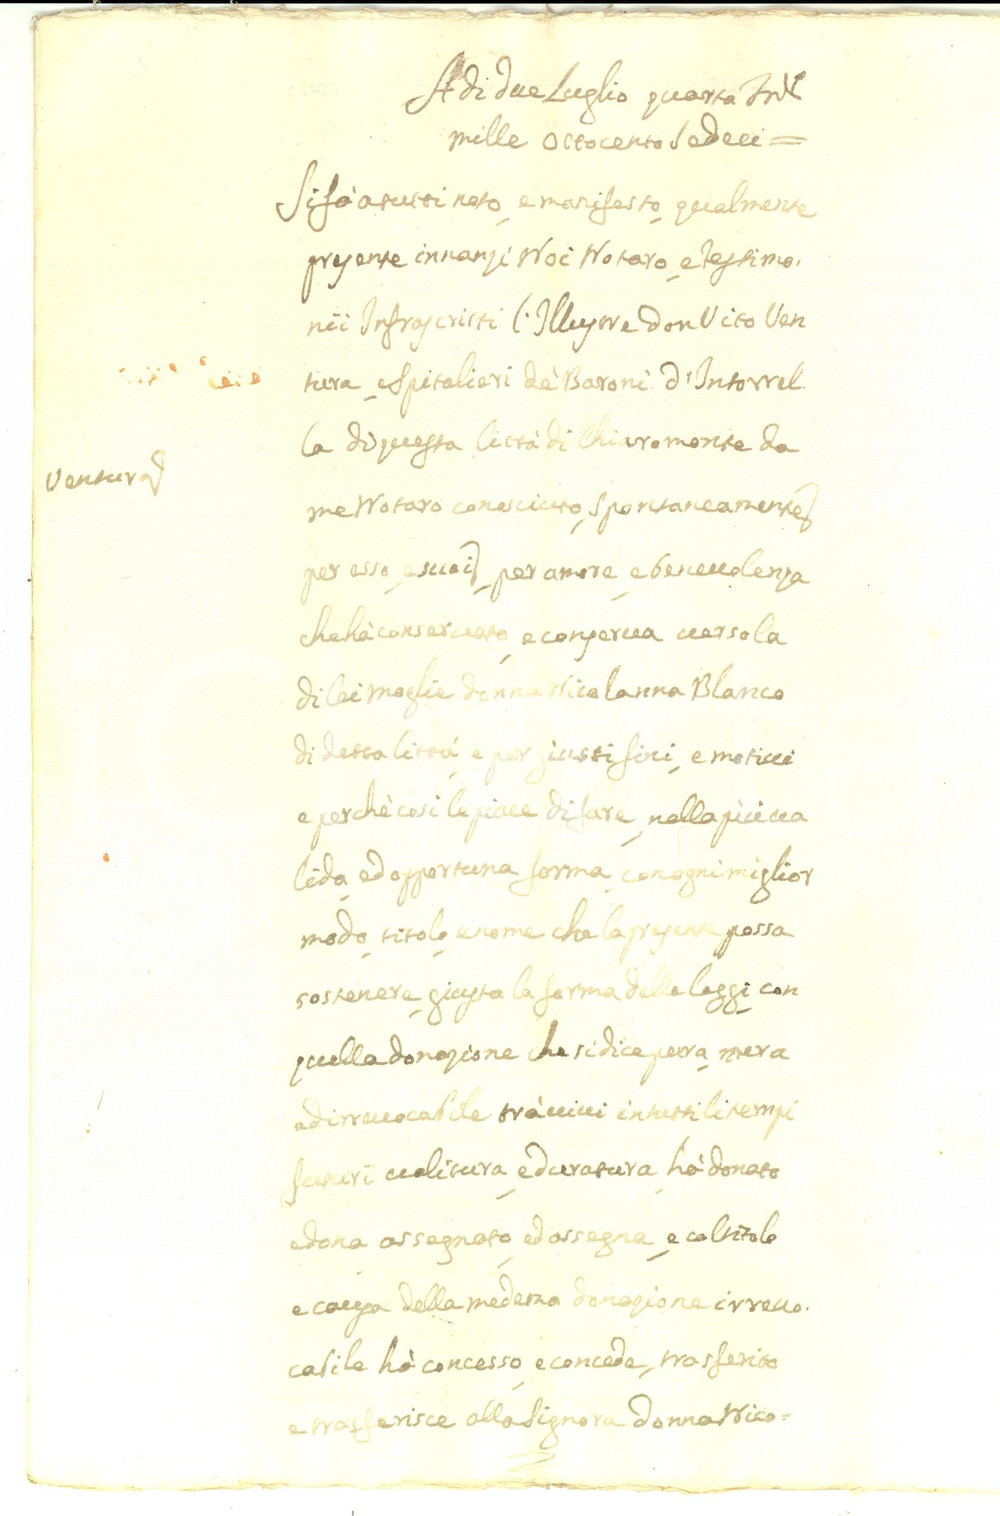 A di due Luglio quarta Ind.
mille ottocento sedeci =
Si fà a tutti noto, e manifesto, qualmente
presente innanzi Noi Notaro, e Testimo.
nii Infrascritti l'Illustre don Vito Ven
tura, e Spitalieri de' Baroni d'Intorrel.
la di questa Città di Chiaromonte da
Ventura
me Notaro conosciuto, spontaneamente
per esso, e suoi, per amore, e benevolenza
che hà conservato, e conserva verso la
di lei moglie donna Nicolanna Blanco
di detta Città, e per giusti fini, e motivi
e perchè così le piace di fare, nella più va
lida, ed opportuna forma, con ogni miglior
modo, titolo, e nome che la presente possa
sostenere, giusta la forma delle leggi, con
quella donazione che si dice pura, mera
ed irrevocabile trà vivi in tutti li tempi
futuri valitura, e duratura, hà donato
e dona assegnato, ed assegna, e col titolo
e causa della medema donazione irrevo.
cabile hà concesso, e concede, trasferito
e trasferisce alla Signora donna Nico =